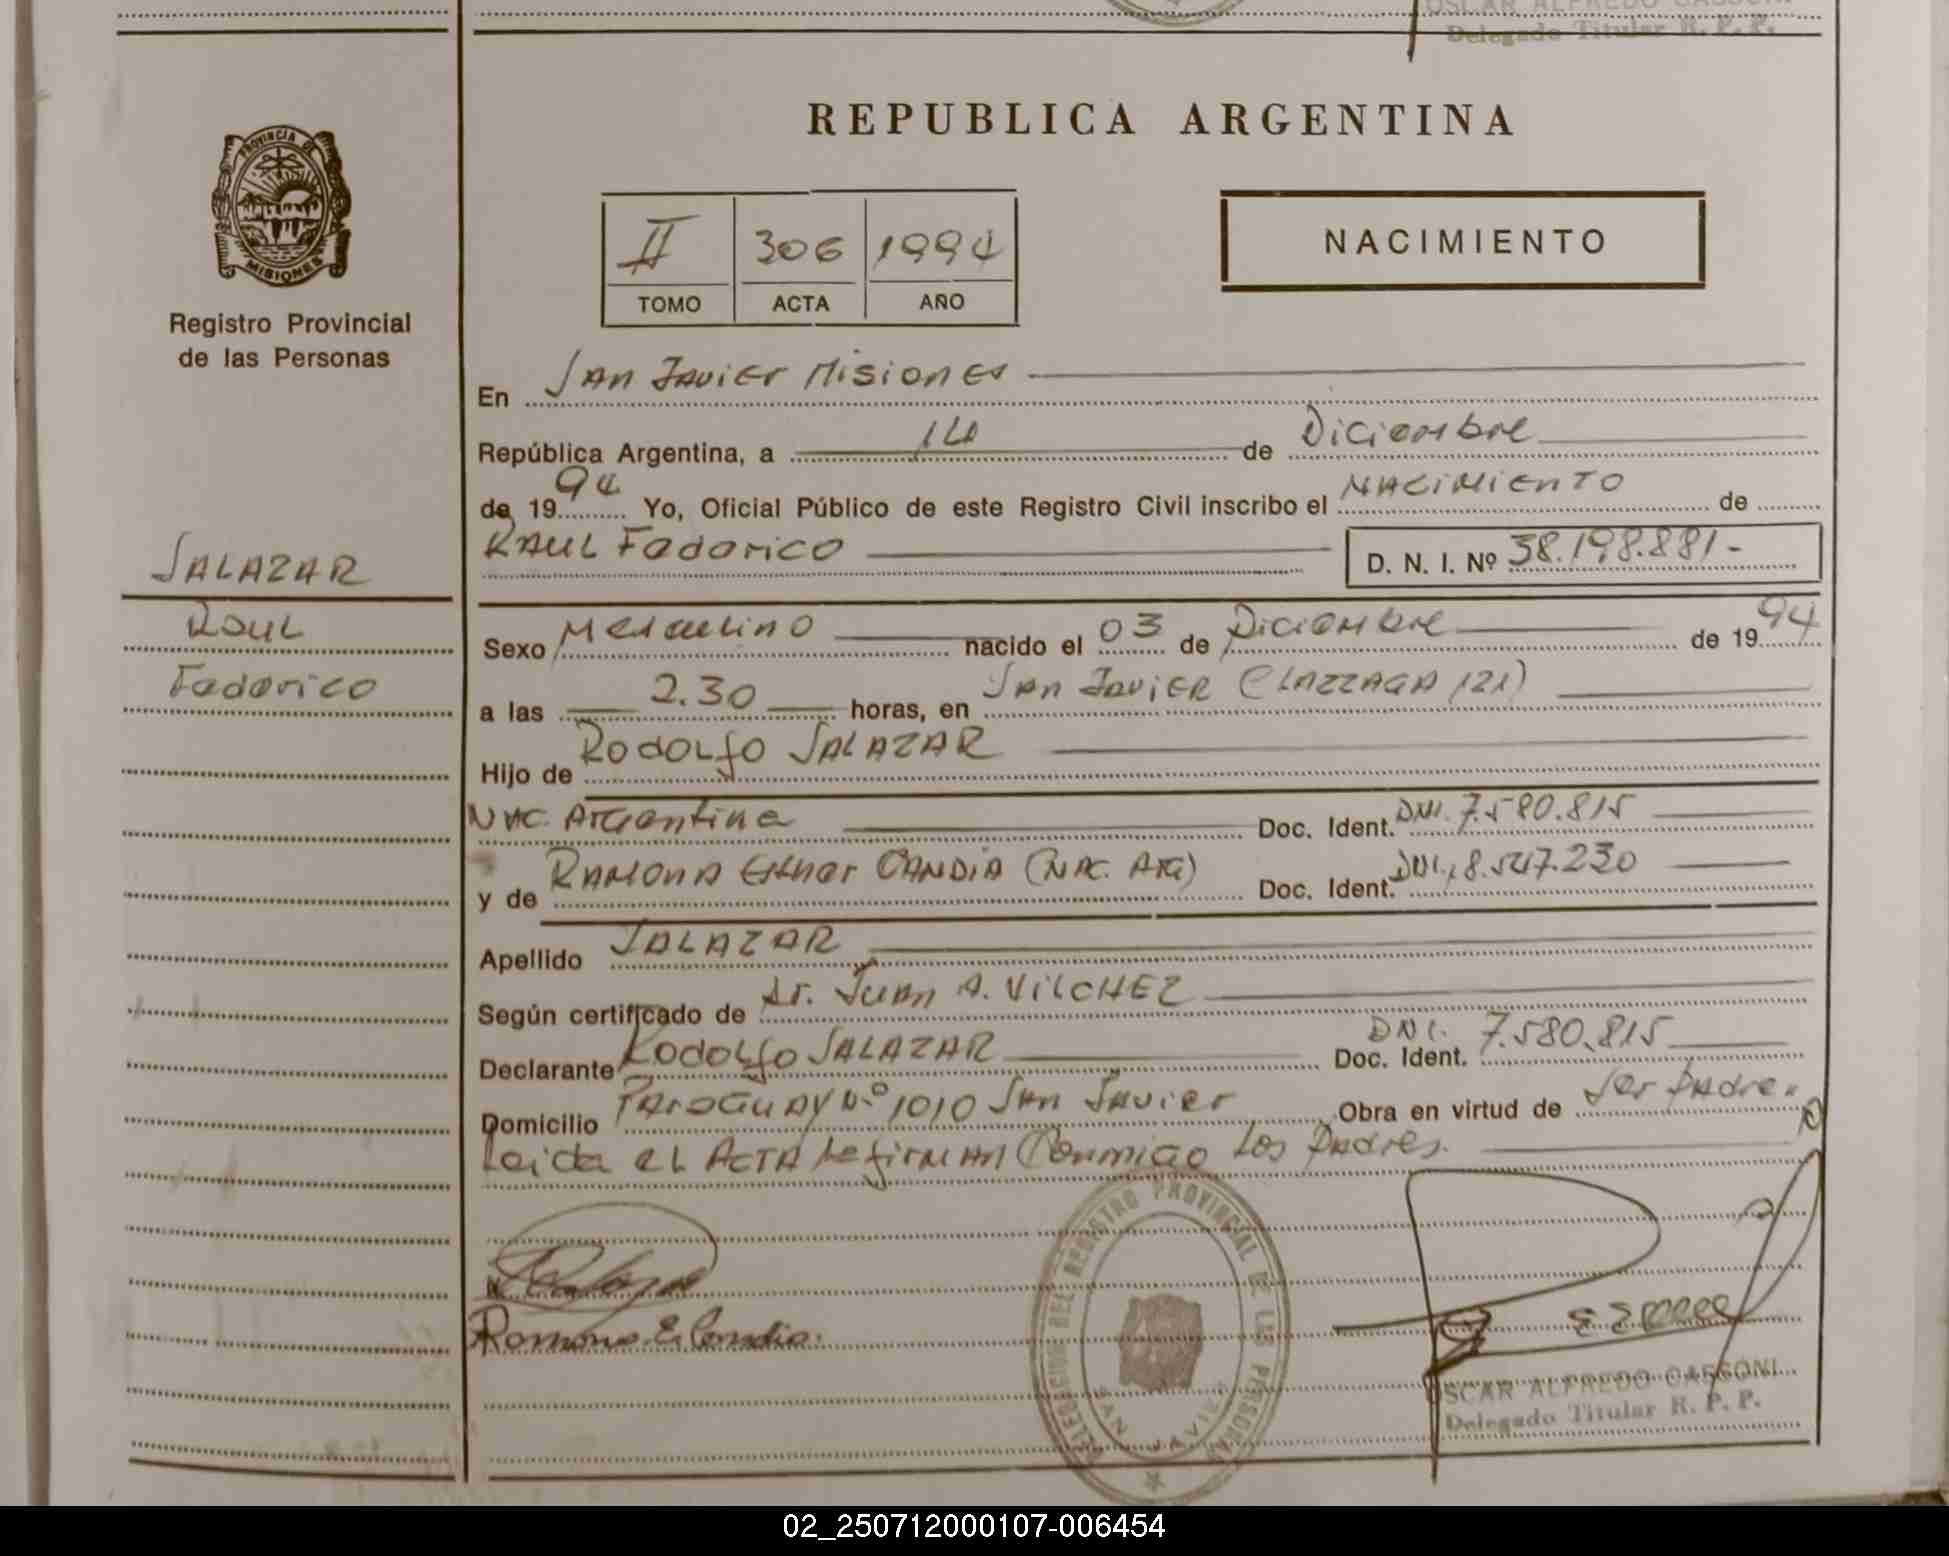 OSCAR ALFREDO CASSONI
Delegado Titular R. P. P.
PROVINCIA DE
MISIONES
Registro Provincial
de las Personas
SALAZAR
Raul
Federico
REPUBLICA ARGENTINA
II 306 1994
TOMO ACTA AÑO
NACIMIENTO
En San Javier Misiones
República Argentina, a 14 de Diciembre
de 1994 Yo, Oficial Público de este Registro Civil inscribo el NACIMIENTO de
RAUL Federico D. N. I. Nº 38.198.881-
Sexo Masculino nacido el 03 de Diciembre de 1994
a las 2.30 horas, en San Javier (LAZZAGA 121)
Hijo de Rodolfo SALAZAR
NAC. Argentina Doc. Ident. DNI. 7.580.815
y de RAMONA Esther CANDIA (NAC. ARG) Doc. Ident. DNI. 18.547.230
Apellido SALAZAR
Según certificado de Dr. Juan A. VILCHEZ
Declarante Rodolfo SALAZAR Doc. Ident. DNI. 7.580.815
Domicilio PARAGUAY Nº 1010 San Javier Obra en virtud de ser padre
Leida el ACTA la firman Conmigo los padres.
Ramona E. Candia.
DELEGACION DEL REGISTRO PROVINCIAL DE LAS PERSONAS
SAN JAVIER
OSCAR ALFREDO CASSONI
Delegado Titular R. P. P.
02_250712000107-006454